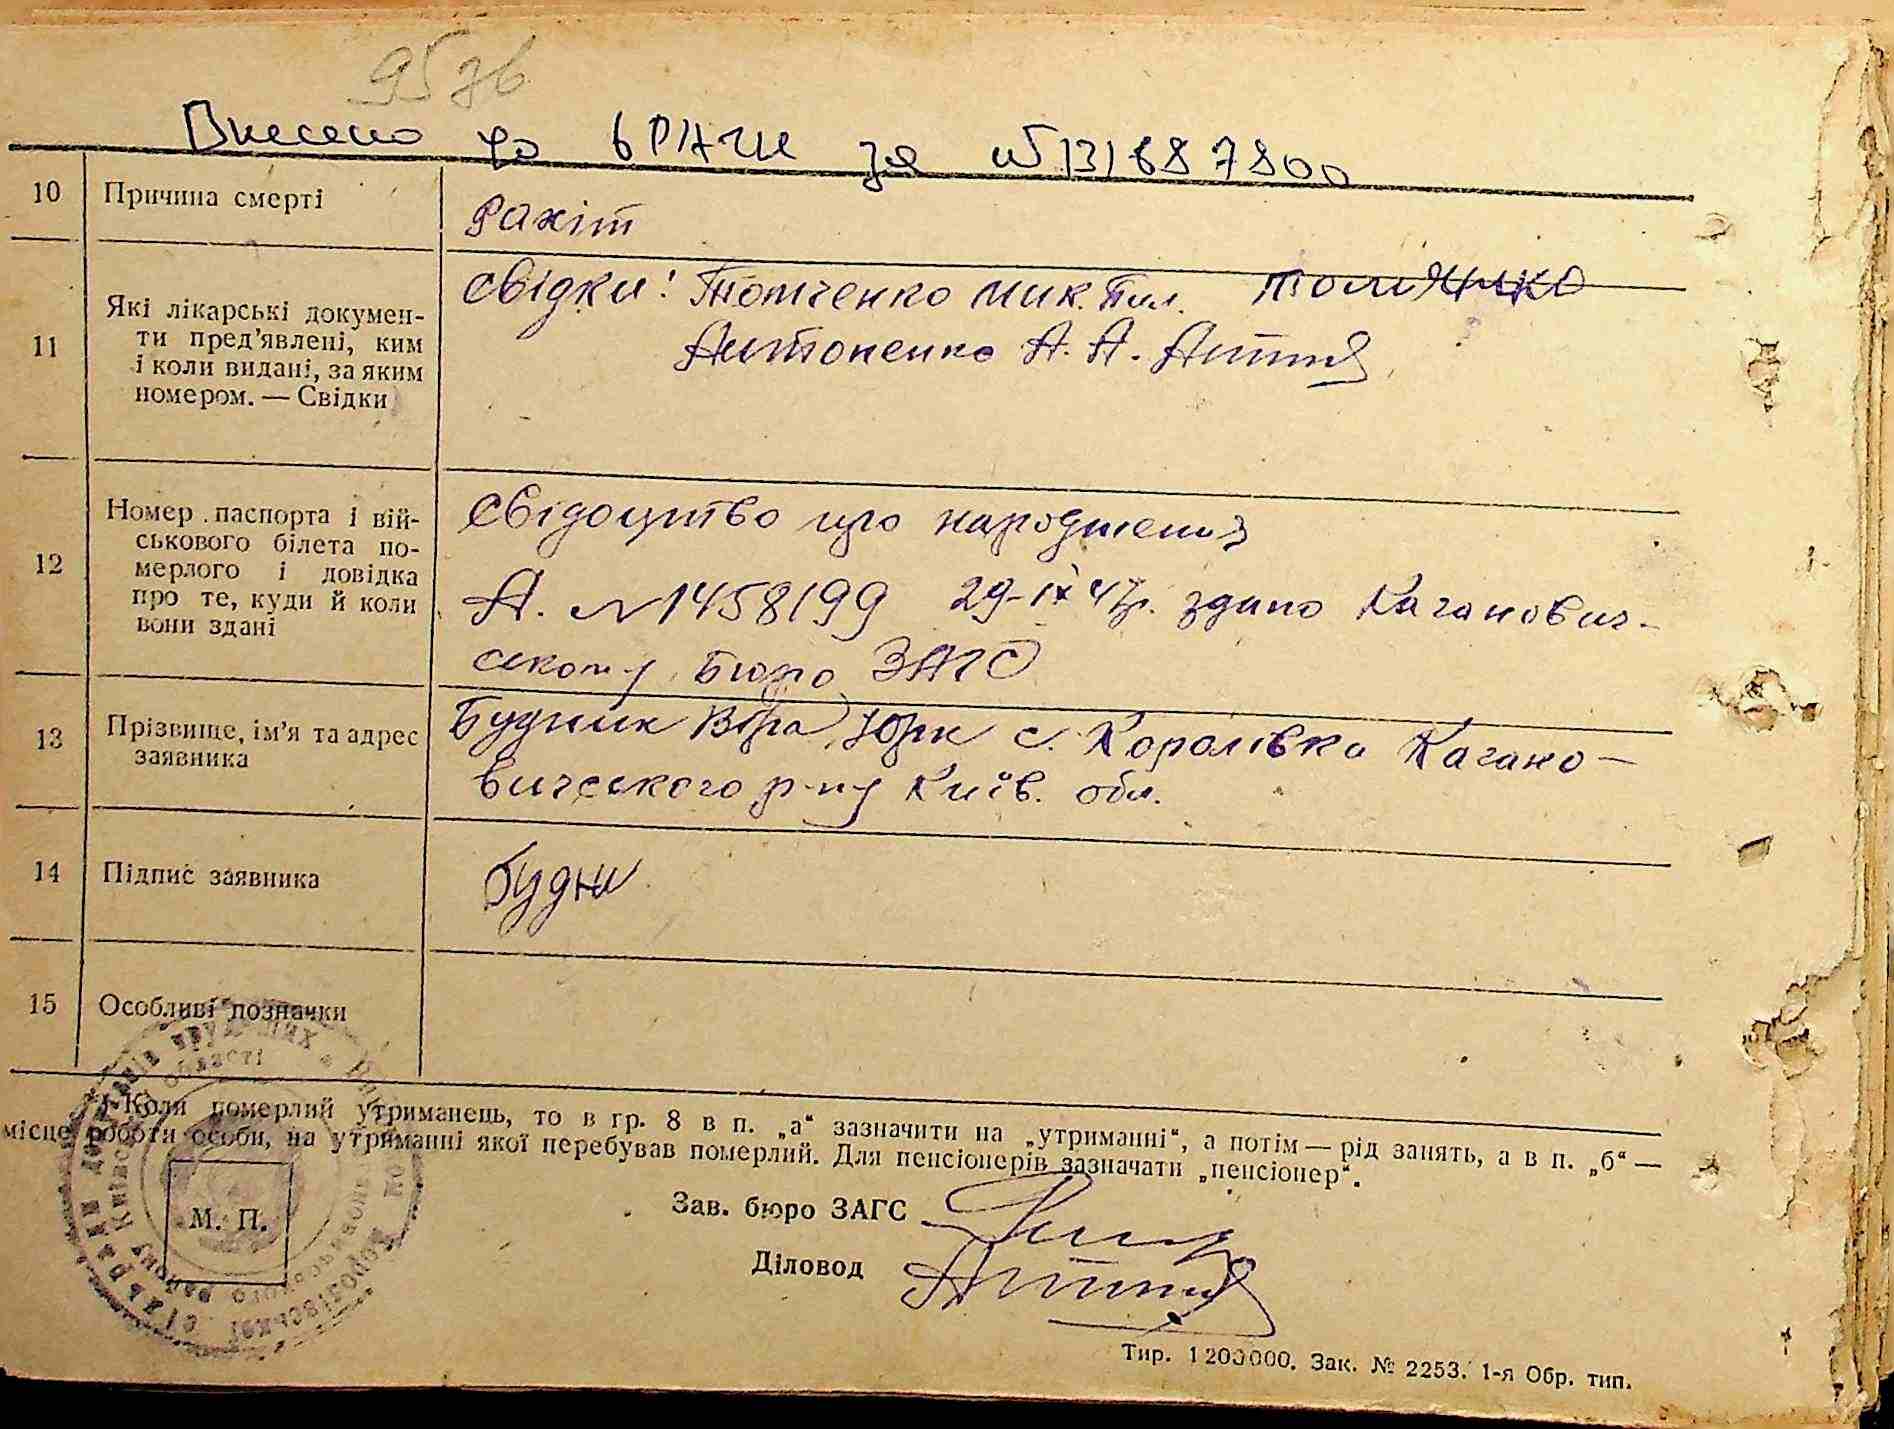 95 зв
Внесено до ЄРАЧН за № 131687800
10 Причина смерті
Рахіт
11 Які лікарські докумен-
ти пред’явлені, ким
і коли видані, за яким
номером. — Свідки
свідки: мик. Пил.
Антоненко А. А.
12 Номер паспорта і вій-
ськового білета по-
мерлого і довідка
про те, куди й коли
вони здані
свідоцтво про народження
А. № 1458199 29-IX 47р. здано Каганович-
ському Бюро ЗАГС
13 Прізвище, ім’я та адрес
заявника
Будник Віра Юрк с. Королівка Кагано-
вичського р-ну Київ. обл.
14 Підпис заявника
Будни
15 Особливі позначки
Коли померлий утриманець, то в гр. 8 в п. „а“ зазначити на „утриманні“, а потім — рід занять, а в п. „б“ —
місце роботи особи, на утриманні якої перебував померлий. Для пенсіонерів зазначати „пенсіонер“.
М. П.
Зав. бюро ЗАГС
Діловод
Тир. 1200000. Зак. № 2253. 1-я Обр. тип.